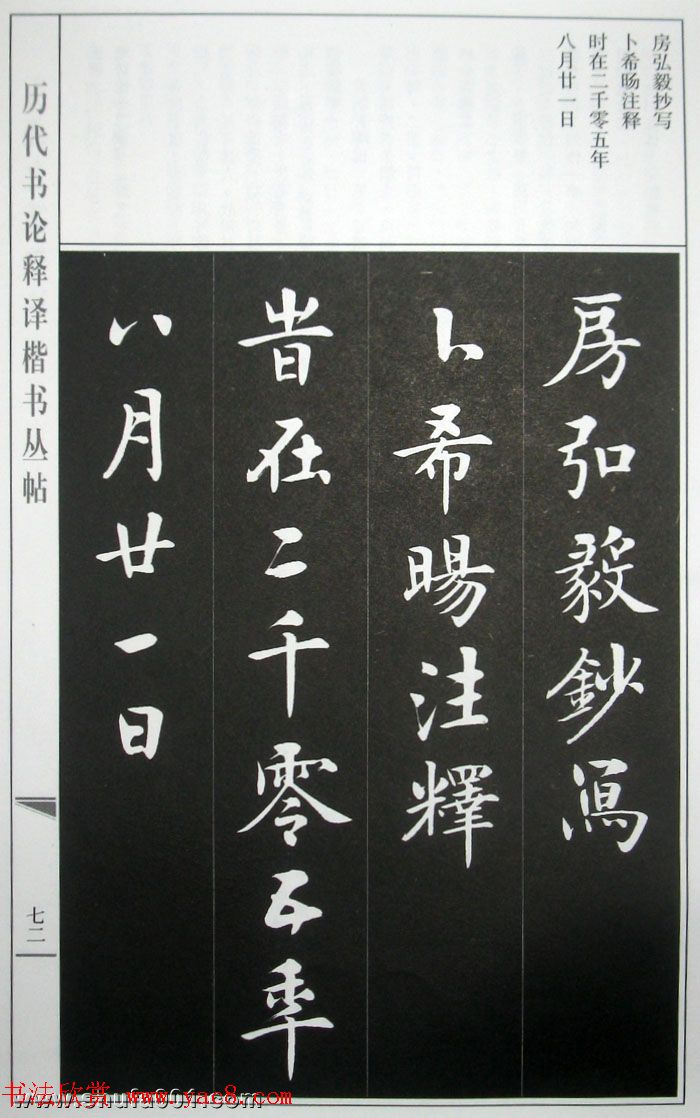 房弘毅抄写
卜希旸注释
时在二千零五年
八月廿一日
房弘毅鈔寫
卜希暘注釋
旹在二千零五年
八月廿一日
历代书论释译楷书丛帖
七二
书法欣赏 www.yac8.com